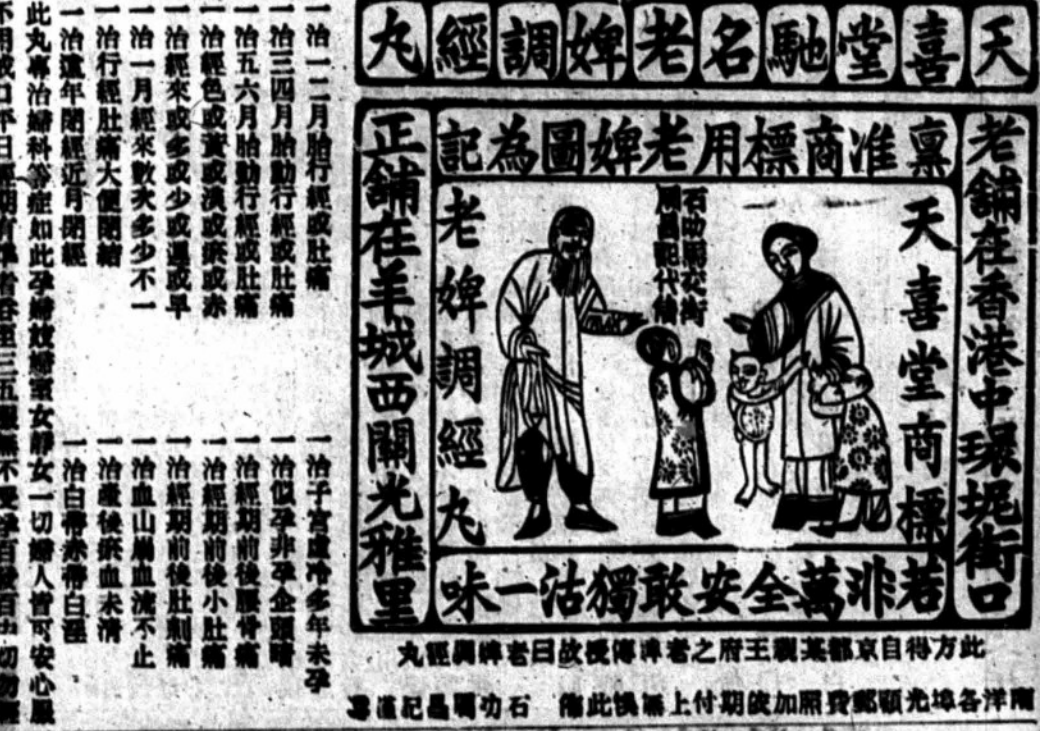 天喜堂馳名老婢調經丸
老舖在香港中環坭街口
稟准商標用老婢圖為記
天喜堂商標
老婢調經丸
若非萬全安敢獨沽一味
正舖在羊城西關光雅里
此方得自京都某親王府之老婢傳授故曰老婢調經丸
南洋各埠光顧郵費照加依期付上無悞此佈
一治一二月胎行經或肚痛
一治三四月胎動行經或肚痛
一治五六月胎動行經或肚痛
一治經色或黃或淡或瘀或赤
一治經來或多或少或遲或早
一治一月經來數次多少不一
一治行經肚痛大便閉結
一治遠年閉經近月閉經
一治子宮虛冷多年未孕
一治似孕非孕企頭暗
一治經期前後腰骨痛
一治經期前後小肚痛
一治經期前後肚刺痛
一治血山崩血流不止
一治產後瘀血未清
一治白帶赤帶白淫
此丸專治婦科等症如此孕婦妓婦室女靜女一切婦人皆可安心服